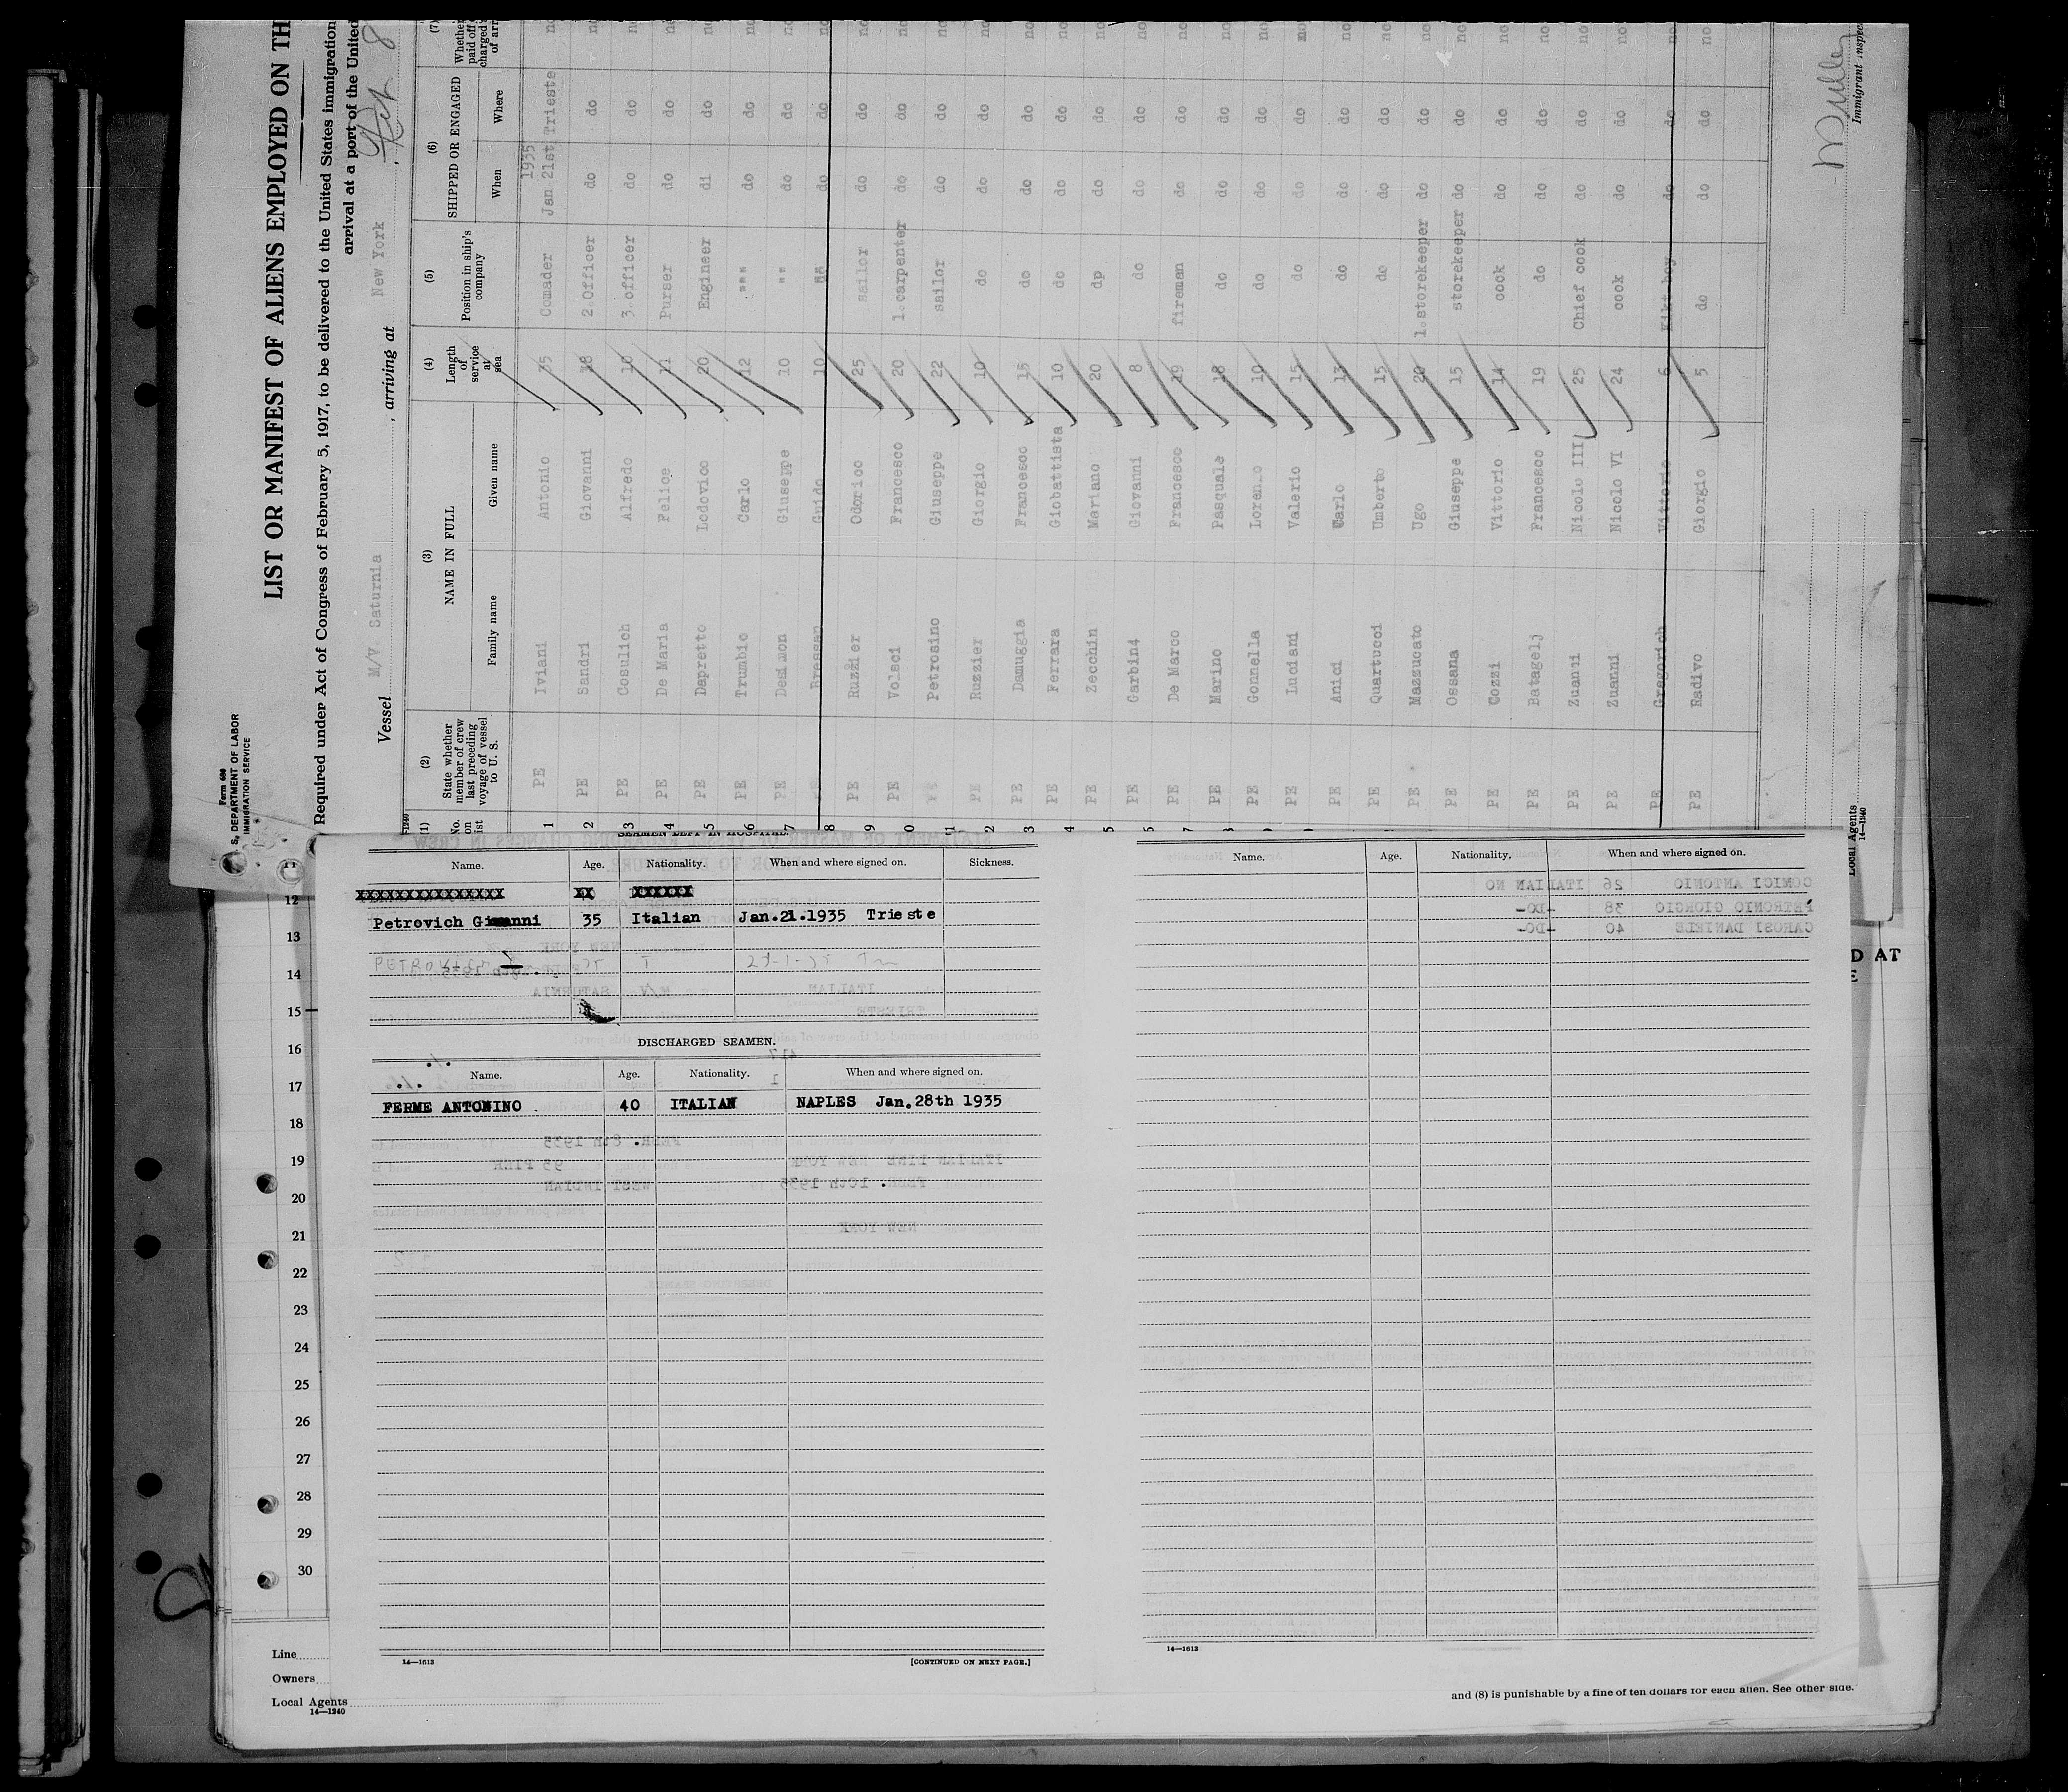 Form 680
S. DEPARTMENT OF LABOR
IMMIGRATION SERVICE
LIST OR MANIFEST OF ALIENS EMPLOYED ON TH
Required under Act of Congress of February 5, 1917, to be delivered to the United States immigration
arrival at a port of the United
Vessel M/V. Saturnia, arriving at New York, 8
(1) No. on ist (2) State whether member of crew last preceding voyage of vessel to U. S. (3) NAME IN FULL Family name Given name (4) Length of service at sea (5) Position in ship's company (6) SHIPPED OR ENGAGED When Where (7)
1935
1 PE Iviani Antonio 35 Comader Jan 21st Trieste no
2 PE Sandri Giovanni 38 2.Officer do do no
3 PE Cosulich Alfredo 10 3.officer do do no
4 PE De Maria Felice 11 Purser do do no
5 PE Dapretto Lodovico 20 Engineer di do no
6 PE Trumbio Carlo 12 """ do do no
7 PE Desimon Giuseppe 10 "" do do no
8 Bressan Guido 10 do do no
9 PE Ruzzier Odorico 25 sailor do do no
0 PE Volsci Francesco 20 1.carpenter do do no
1 Petrosino Giuseppe 22 sailor do do no
2 PE Ruzzier Giorgio 10 do do do no
3 PE Damugia Francesco 15 do do do no
4 PE Ferrara Giobattista 10 do do do no
5 PE Zecchin Mariano 20 dp do do no
5 PE Garbin4 Giovanni 8 do do do no
7 PE De Marco Francesco 19 fireman do do no
PE Marino Pasquale 18 do do do no
PE Gonnella Lorenzo 10 do do do no
PE Luciani Valerio 15 do do do no
PE Anici Carlo 13 do do do no
PE Quartucci Umberto 15 do do do no
PE Mazzucato Ugo 20 1.storekeeper do do no
PE Ossana Giuseppe 15 storekeeper do do no
PE Cozzi Vittorio 14 cook do do no
PE Batagelj Francesco 19 do do do no
PE Zuanni Nicolo III 25 Chief cook do do no
PE Zuanni Nicolo VI 24 cook do do no
PE Gregorich Vittorio 6 Kikt boy do do no
PE Radivo Giorgio 5 do do do no
Immigrant Inspec
Local Agents
14—1240
SEAMEN LEFT IN HOSPITAL.
Name. Age. Nationality. When and where signed on. Sickness.
XXXXXXXXXXXXXXX XX XXXXXX
Petrovich Giovanni 35 Italian Jan.21.1935 Trieste
DISCHARGED SEAMEN.
Name. Age. Nationality. When and where signed on.
FERME ANTONINO . 40 ITALIAN NAPLES Jan.28th 1935
14—1613 [CONTINUED ON NEXT PAGE.]
Name. Age. Nationality. When and where signed on.
COMICI ANTONIO 26 ITALIAN NO
PETRONIO GIORGIO 38 -DO-
CAROSI DANIELE 40 -DO-
14—1613
D AT
E
11
12
13
14
15
16
17
18
19
20
21
22
23
24
25
26
27
28
29
30
Line
Owners
Local Agents
14—1240
and (8) is punishable by a fine of ten dollars for each alien. See other side.